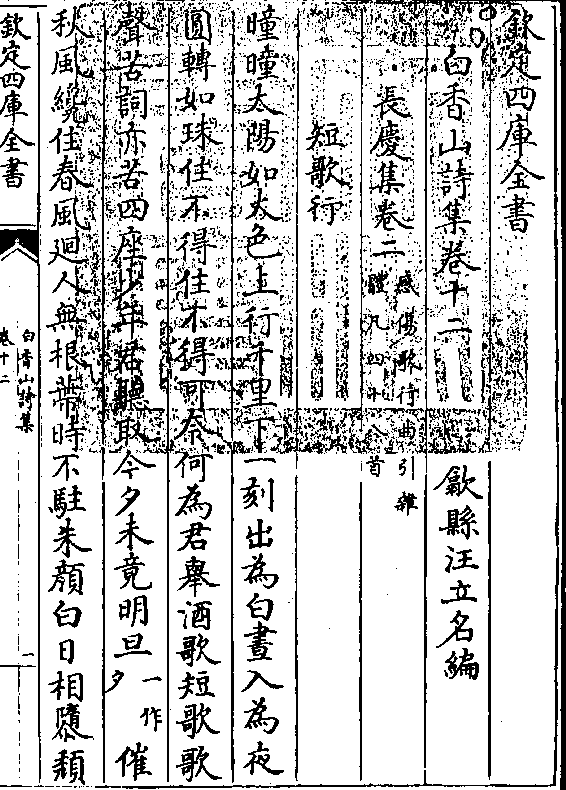 欽定四庫全書
白香山詩集卷十二　歙縣汪立名編
長慶集卷二感傷歌行曲引雜
體凡四十八首
短歌行
曈曈太陽如火色上行千里下一刻出為白晝入為夜
圓轉如珠住不得住不得可奈何為君舉酒歌短歌歌
聲苦詞亦苦四座少年君聽取今夕未竟明旦一作
夕催
秋風纔往春風廻人無根蔕時不駐朱顏白日相隳頹
欽定四庫全書
白香山詩集
卷十二
一